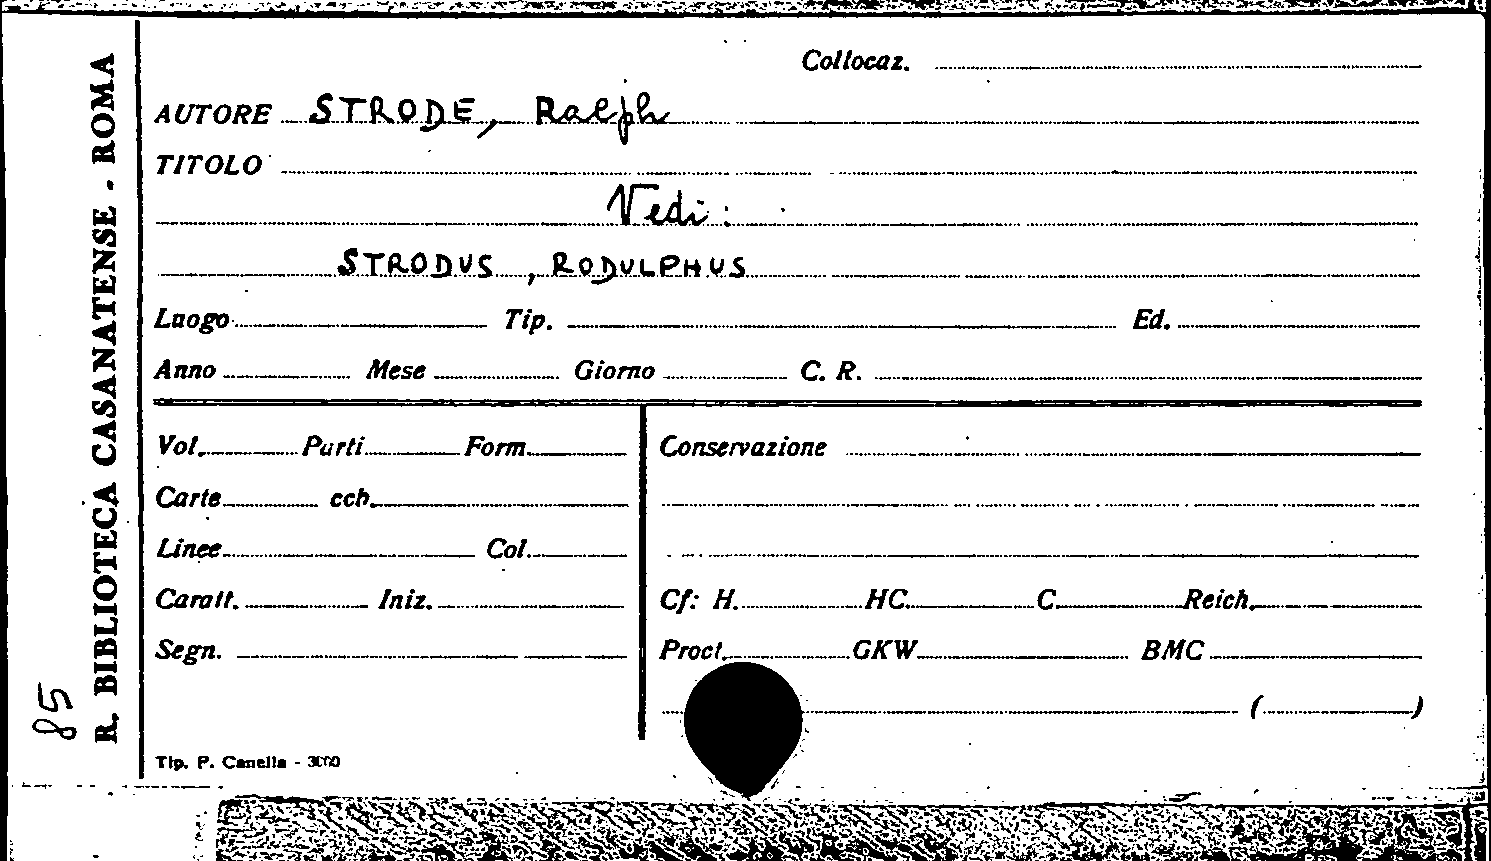 Collocaz.
AUTORE STRODE, Ralph
TITOLO
Vedi:
STRODUS, RODULPHUS
Luogo Tip. Ed.
Anno Mese Giorno C. R.
Vol. Parti Form.
Carte cch.
Linee Col.
Caratt. Iniz.
Segn.
Conservazione
Cf: H. HC. C. Reich.
Proct. GKW BMC
( )
Tip. P. Canella - 3000
R. BIBLIOTECA CASANATENSE - ROMA
85